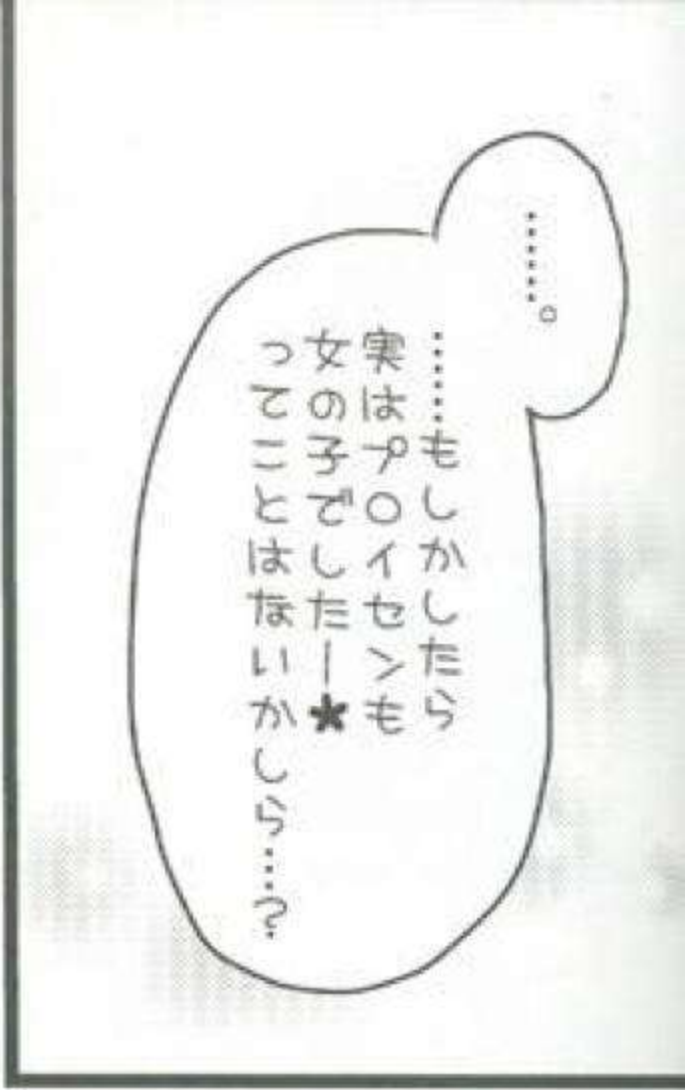 ……。
……もしかしたら
実はプ○イセンも
女の子でしたー★
ってことはないかしら…？